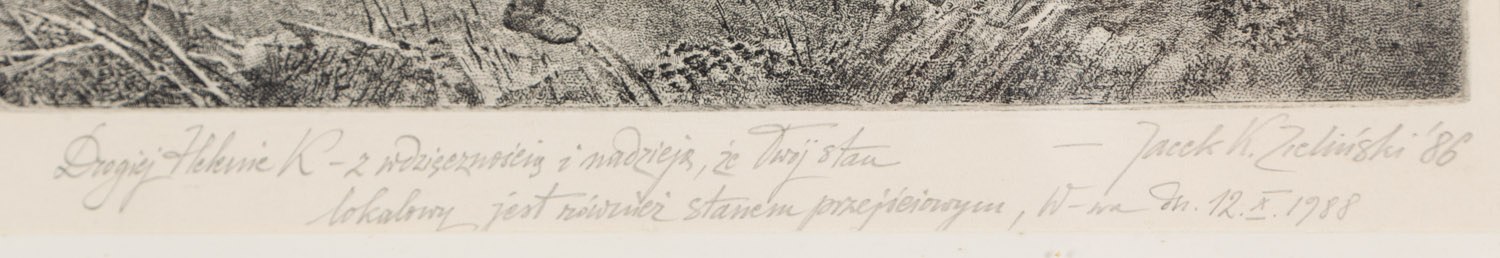 Drogiej Helenie K – z wdzięcznością i nadzieją, że Twój stan — Jacek K. Zieliński '86
lokalowy jest również stanem przejściowym, W-wa dn. 12.X.1988